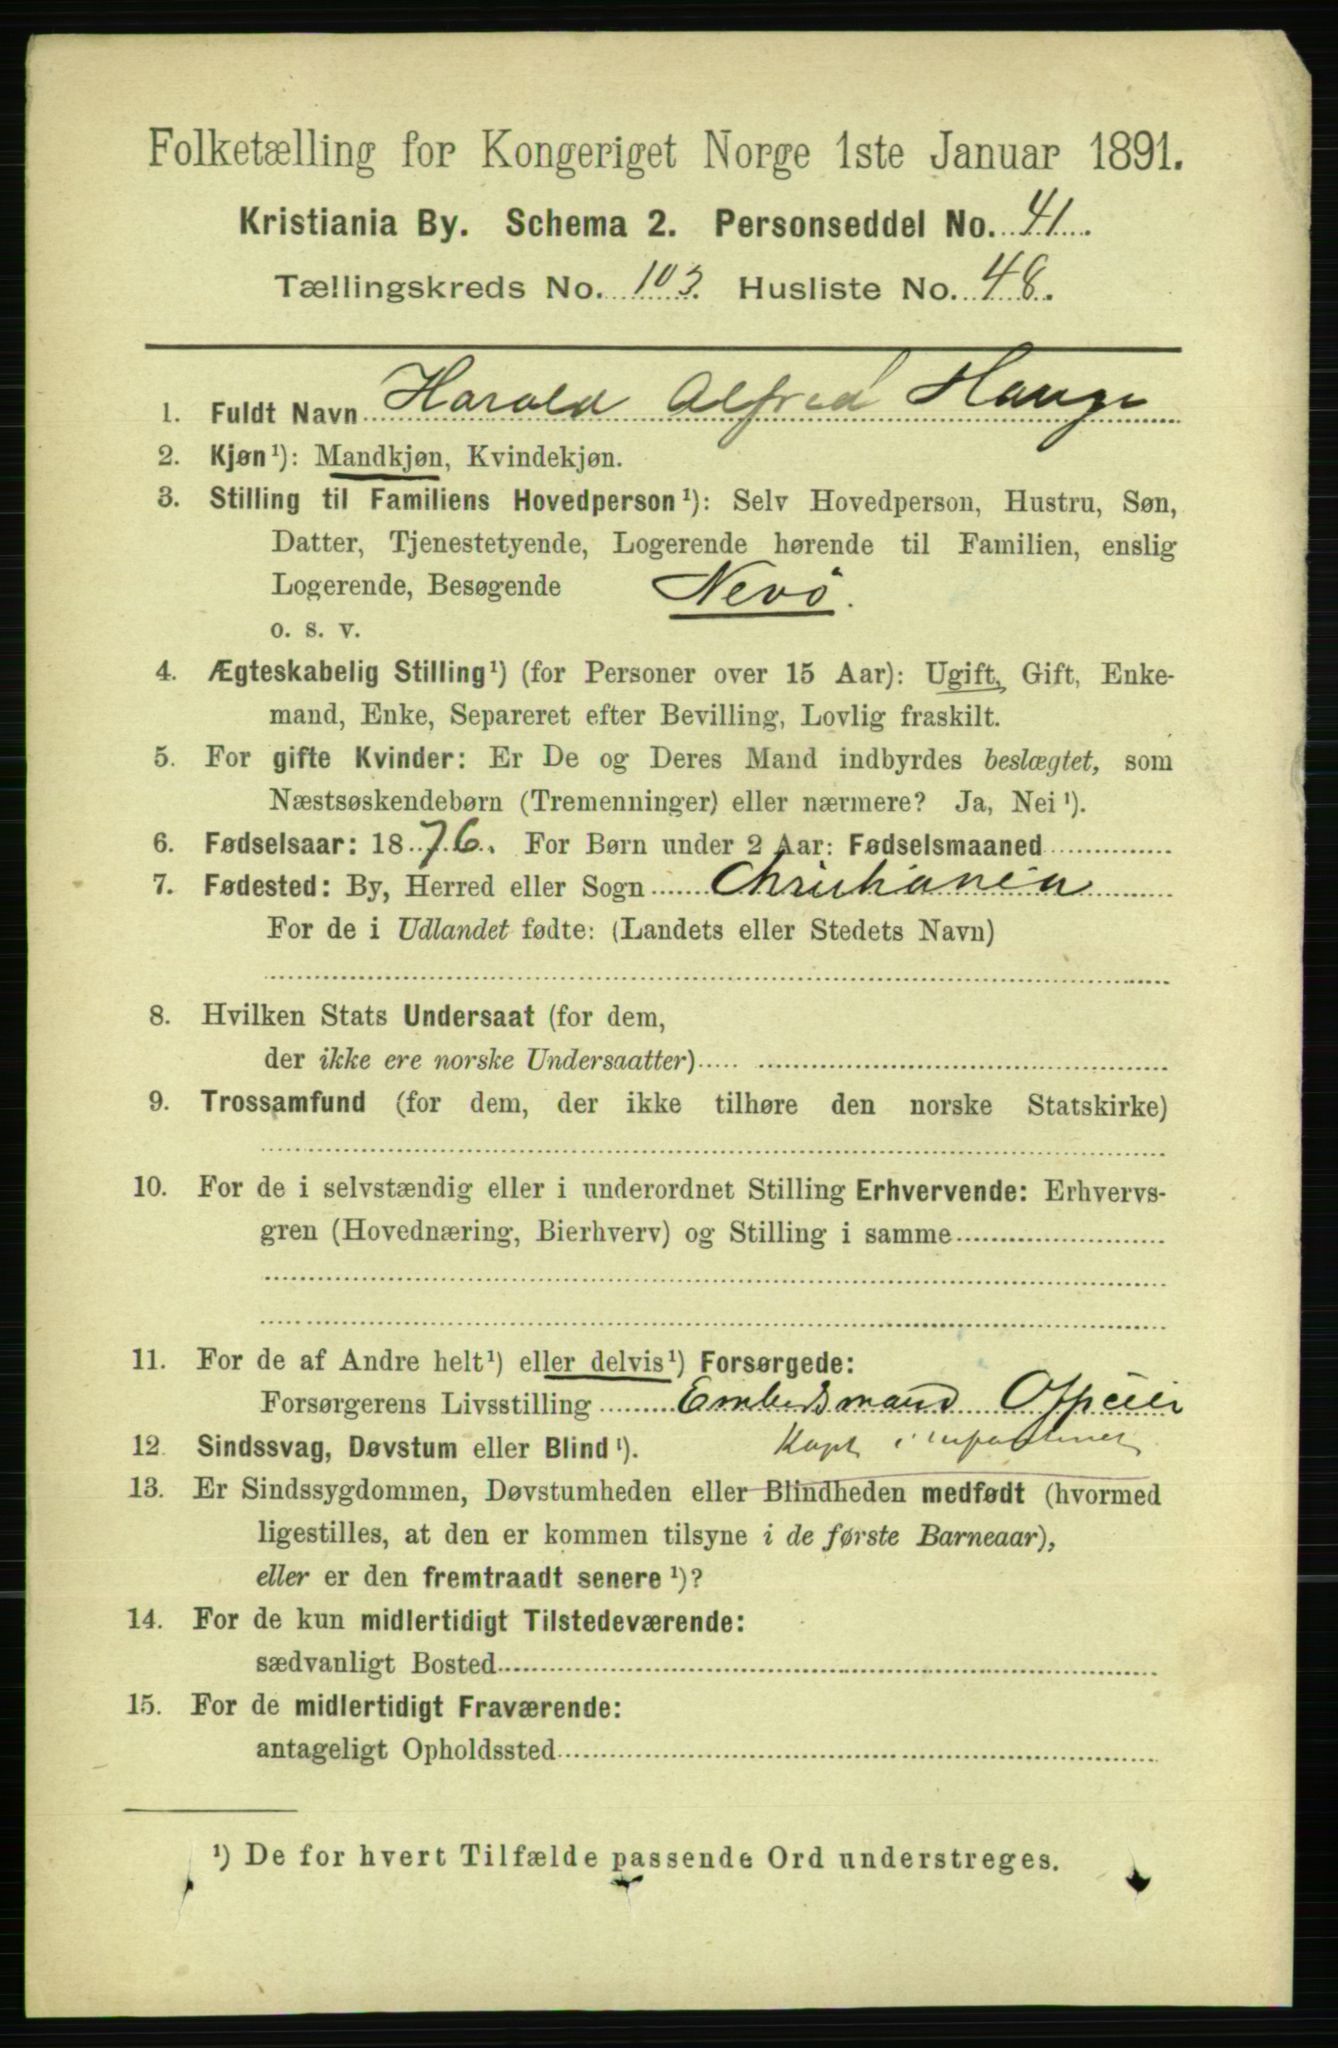 Folketælling for Kongeriget Norge 1ste Januar 1891.
Kristiania By. Schema 2. Personseddel No. 41.
Tællingskreds No. 103. Husliste No. 48.
1. Fuldt Navn Harald Alfred Hauge
2. Kjøn¹): Mandkjøn, Kvindekjøn.
3. Stilling til Familiens Hovedperson¹): Selv Hovedperson, Hustru, Søn,
Datter, Tjenestetyende, Logerende hørende til Familien, enslig
Logerende, Besøgende Nevö.
o. s. v.
4. Ægteskabelig Stilling¹) (for Personer over 15 Aar): Ugift, Gift, Enke-
mand, Enke, Separeret efter Bevilling, Lovlig fraskilt.
5. For gifte Kvinder: Er De og Deres Mand indbyrdes beslægtet, som
Næstsøskendebørn (Tremenninger) eller nærmere? Ja, Nei¹).
6. Fødselsaar: 1876. For Børn under 2 Aar: Fødselsmaaned
7. Fødested: By, Herred eller Sogn Christiania
For de i Udlandet fødte: (Landets eller Stedets Navn)
8. Hvilken Stats Undersaat (for dem,
der ikke ere norske Undersaatter)
9. Trossamfund (for dem, der ikke tilhøre den norske Statskirke)
10. For de i selvstændig eller i underordnet Stilling Erhvervende: Erhvervs-
gren (Hovednæring, Bierhverv) og Stilling i samme
11. For de af Andre helt¹) eller delvis¹) Forsørgede:
Forsørgerens Livsstilling Embedsmand Officier
12. Sindssvag, Døvstum eller Blind¹). Kapt i
13. Er Sindssygdommen, Døvstumheden eller Blindheden medfødt (hvormed
ligestilles, at den er kommen tilsyne i de første Barneaar),
eller er den fremtraadt senere¹)?
14. For de kun midlertidigt Tilstedeværende:
sædvanligt Bosted
15. For de midlertidigt Fraværende:
antageligt Opholdssted
¹) De for hvert Tilfælde passende Ord understreges.